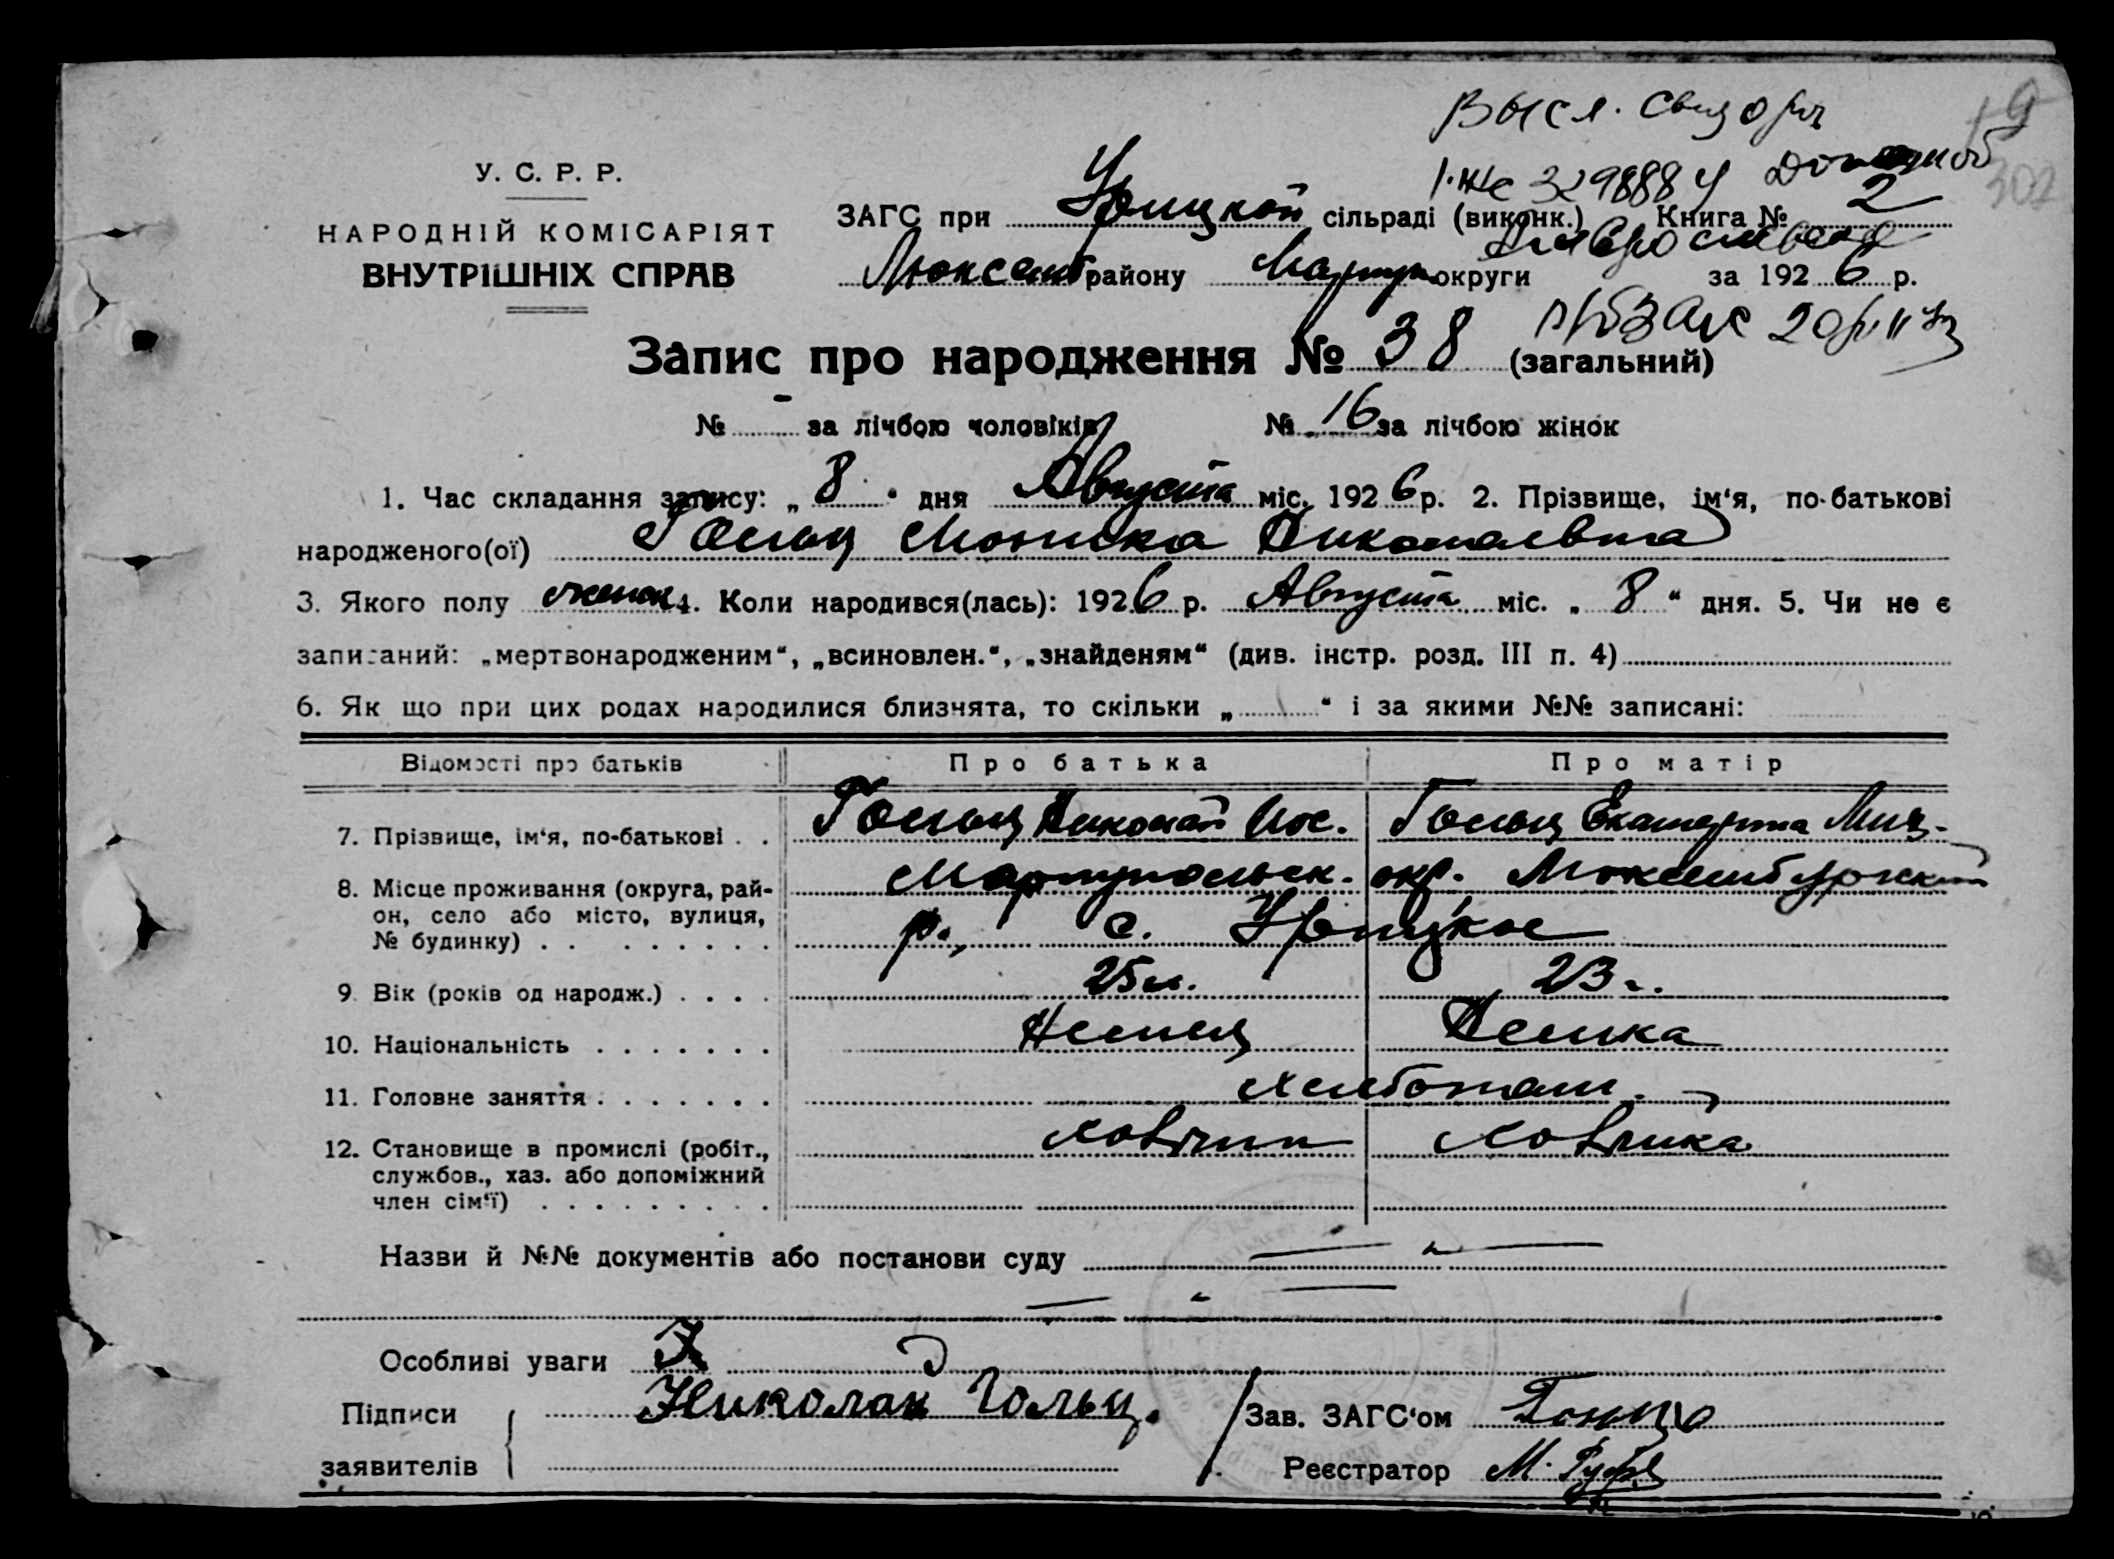 Высл. свид о рж
1-ЖС 329888
У. С. Р. Р.
НАРОДНІЙ КОМІСАРІЯТ
ВНУТРІШНІХ СПРАВ
ЗАГС при Урицкой сільраді (виконк.) Книга № 2
Люксемб району Мариуп округи за 1926 р.
Запис про народження № 38 (загальний)
№ - за лічбою чоловіків № 16 за лічбою жінок
1. Час складання запису: „ 8 “ дня Августа міс. 1926 р. 2. Прізвище, ім‘я, по-батькові
народженого(ої) Гольц Моника Николаевна
3. Якого полу женск 4. Коли народився(лась): 1926 р. Августа міс. „ 8 “ дня. 5. Чи не є
записаний: „мертвонародженим“, „всиновлен.“, „знайденям“ (див. інстр. розд. III п. 4)
6. Як що при цих родах народилися близнята, то скільки „ “ і за якими №№ записані:
Відомості про батьків Про батька Про матір
7. Прізвище, ім‘я, по-батькові . . Гольц Николай Иос. Гольц Екатерина Мих.
8. Місце проживання (округа, рай- Мариупольск. окр. Люксембургский
он, село або місто, вулиця, р., с. Урицкое
№ будинку)
9. Вік (років од народж.) 25 л. 23 г.
10. Національність Немец Немка
11. Головне заняття Хлебопаш.
12. Становище в промислі (робіт., хозяин хозяйка
службов., хаз. або допоміжний
член сім‘ї)
Назви й №№ документів або постанови суду — „ —
— „ —
Особливі уваги
Підписи Николай Гольц. Зав. ЗАГС‘ом
заявителів Реєстратор М.